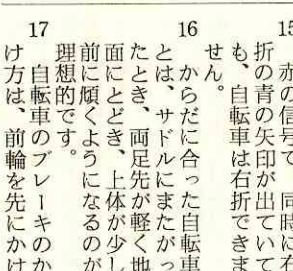 15 赤の信号で 同時に右
折の青の矢印が出ていて
も、自転車は右折できま
せん。
16 からだに合った自転車
とは、サドルにまたがっ
たとき、両足先が軽く地
面にとどき、上体が少し
前に傾くようになるのが
理想的です。
17 自転車のブレーキのか
け方は、前輪を先にかけ